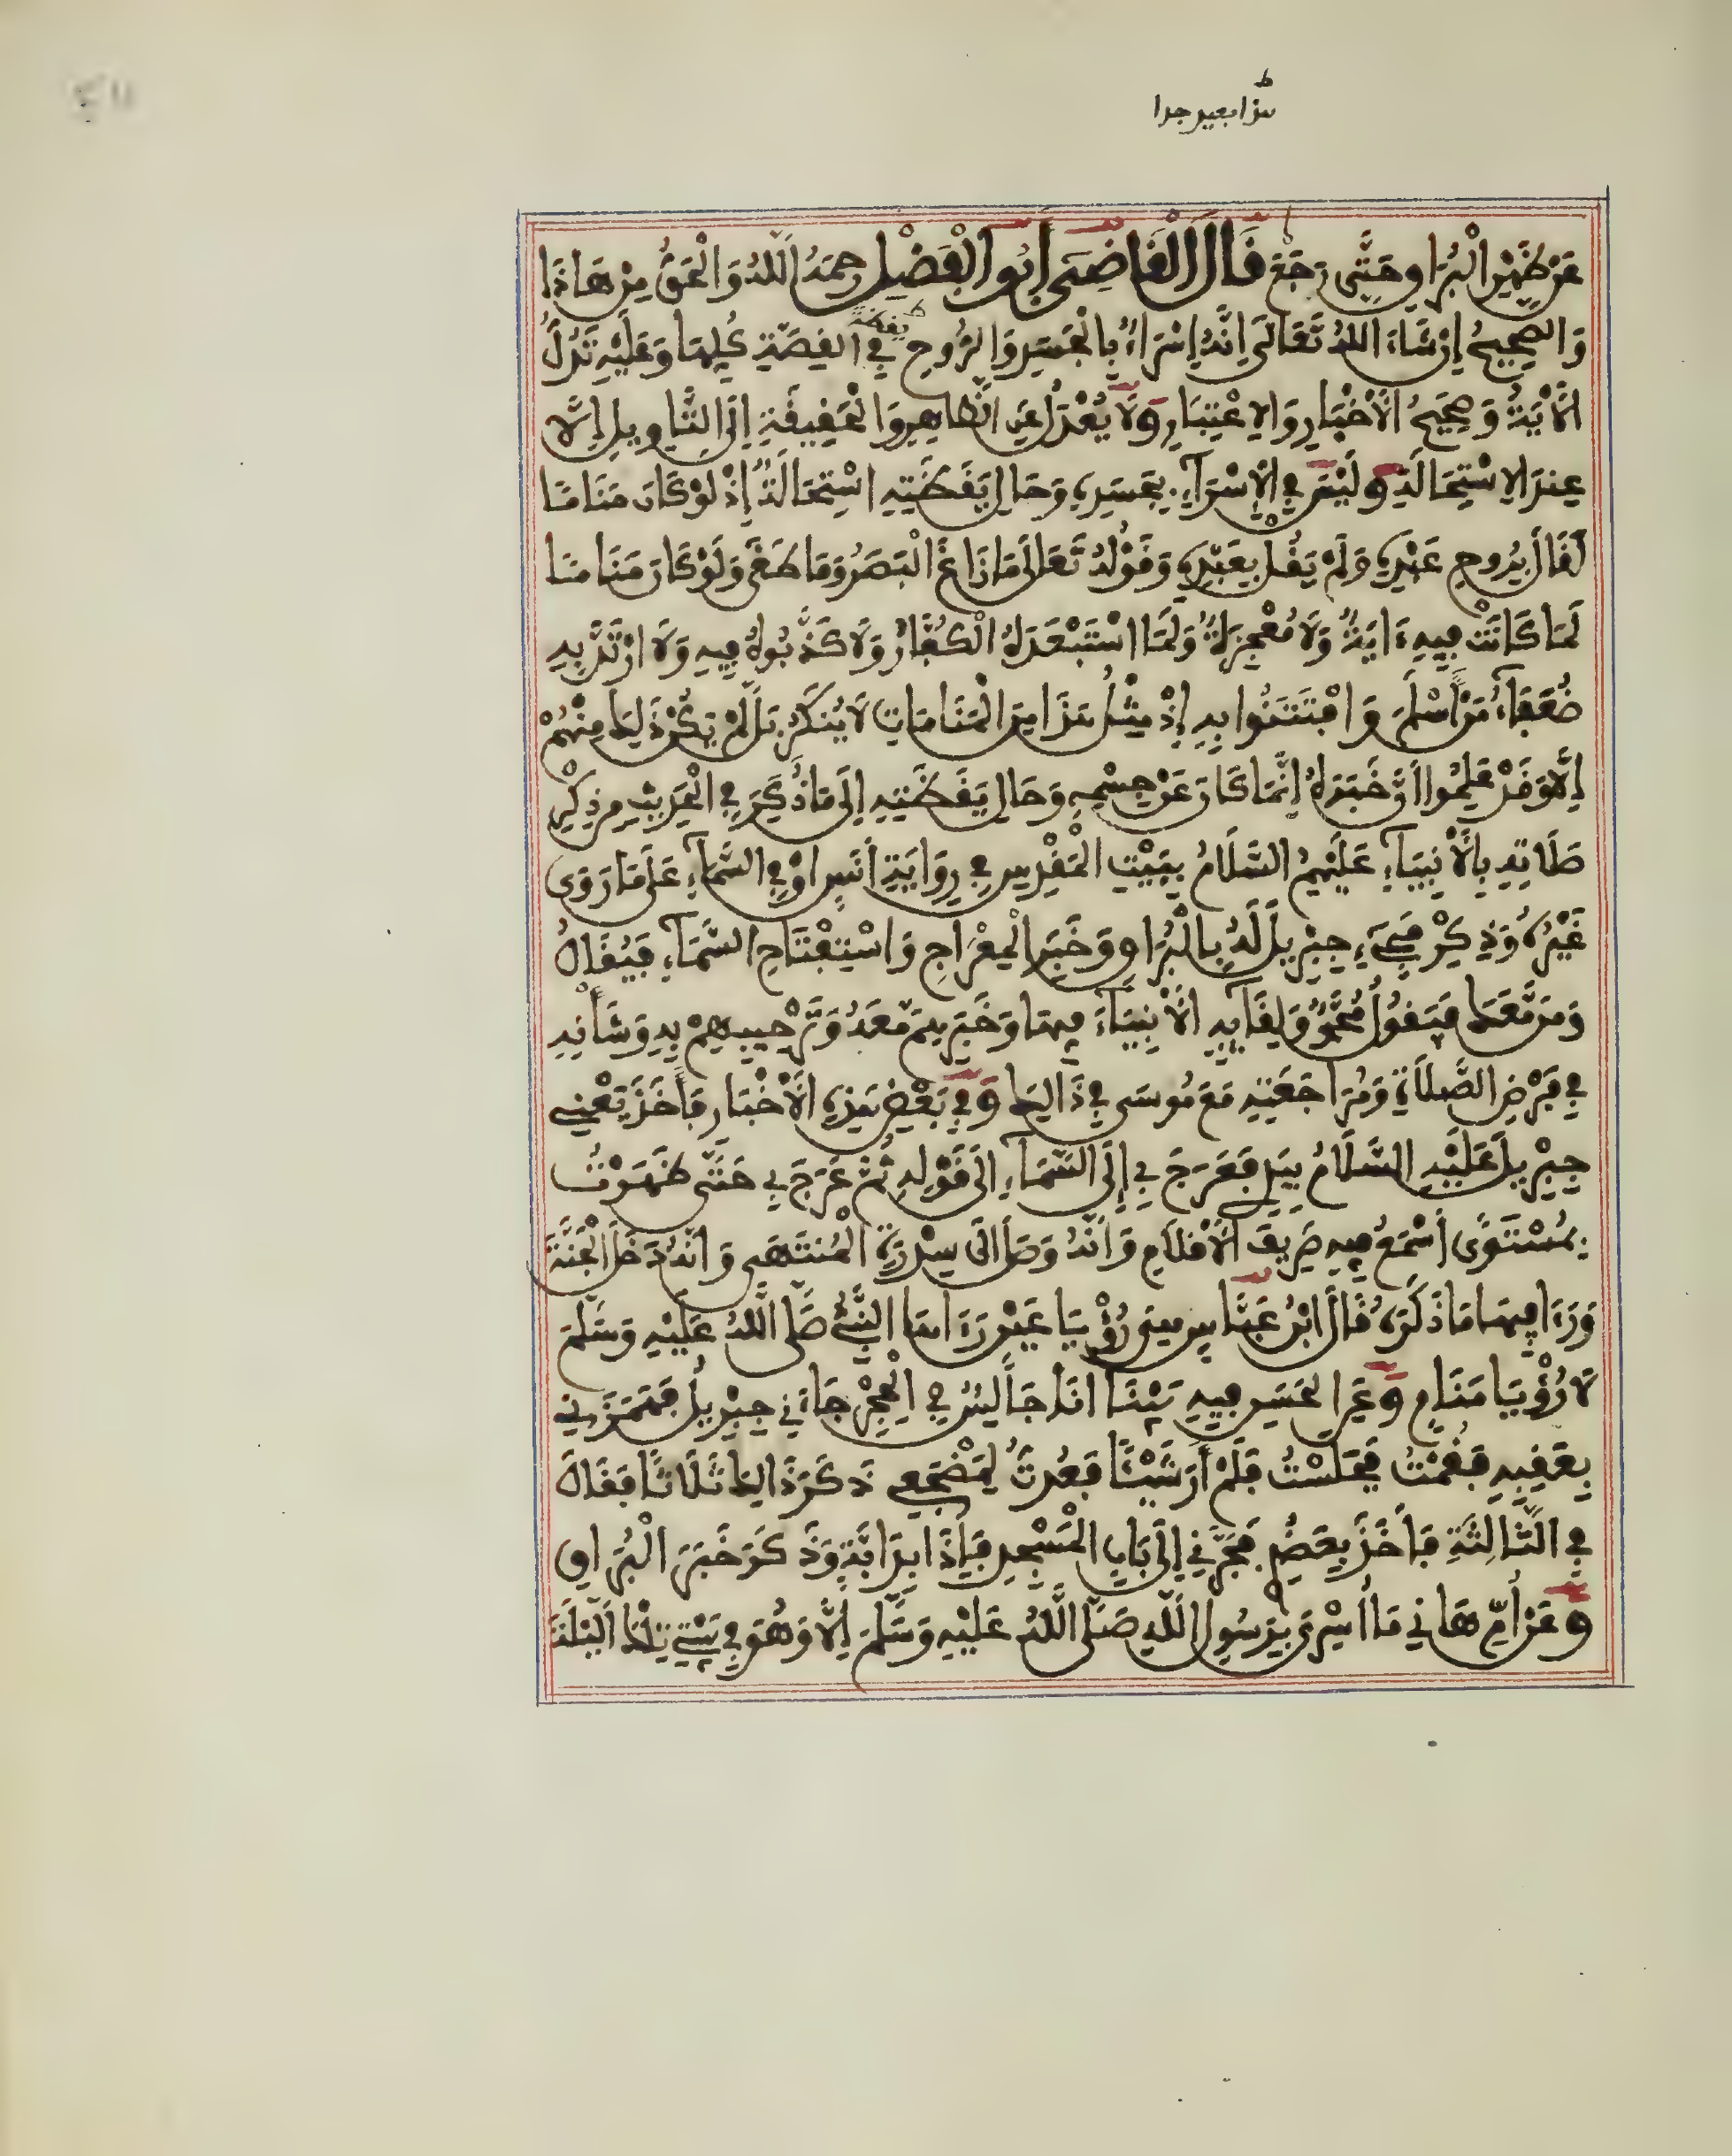 هذا بعيد جدا
عَن ظَهْرِ الْبُرَاقِ حَتَّى رَجَعَ قَالَ الْقَاضِي أَبُو الْفَضْلِ رحمَهُ اللَّهُ وَالْحَقُّ مِنْ هَاذَا
وَالصَّحِيحُ إِن شَاءَ اللَّهُ تَعَالَى أَنَّهُ إِسْرَاءٌ بِالْجَسَدِ وَالرُّوحِ فِي الْقِصَّةِ كُلِّهَا وَعَلَيْهِ تَدُلُّ
يقظة
الْأَيَةُ وَصَحِيحُ الْأَخْبَارِ وَالِاعْتِبَارِ وَلَا يُعْدَلُ عَنِ الظَّاهِرِ وَالْحَقِيقَةِ إِلَى التَّأْوِيلِ إِلَّا
عِندَ الِاسْتِحَالَةِ وَلَيْسَ فِي الْإِسْرَاءِ بِجَسَدِهِ وَحَالِ يَقَظَتِهِ اسْتِحَالَةٌ إِذْ لَوْ كَانَ مَنَامًا
لَقَالَ بِرُوحِ عَبْدِهِ وَلَمْ يَقُل بِعَبْدِهِ وَقَوْلُهُ تَعَالَى مَا زَاغَ الْبَصَرُ وَمَا طَغَى وَلَوْ كَانَ مَنَامًا
لَمَا كَانَتْ فِيهِ ءَايَةٌ وَلَا مُعْجِزَةٌ وَلَمَا اسْتَبْعَدَهُ الْكُفَّارُ وَلَا كَذَّبُوهُ فِيهِ وَلَا ارْتَدَّ بِهِ
ضُعَفَاءُ مَنْ أَسْلَمَ وَافْتَتَنُوا بِهِ إِذْ مِثْلُ هَذَا مِنَ الْمَنَامَاتِ لَا يُنكَرُ بَل لَّمْ يَكُنْ ذَلِكَ مِنْهُمْ
إِلَّا وَقَدْ عَلِمُوا أَنَّ خَبَرَهُ إِنَّمَا كَانَ عَنْ جِسْمِهِ وَحَالِ يَقَظَتِهِ إِلَى مَا ذُكِرَ فِي الْحَدِيثِ مِن ذِكْرِ
صَلَاتِهِ بِالْأَنْبِيَاءِ عَلَيْهِمُ السَّلَامُ بِبَيْتِ الْمَقْدِسِ فِي رِوَايَةِ أَنَسٍ أَوْ فِي السَّمَاءِ عَلَى مَا رَوَى
غَيْرُهُ وَذِكْرِ مَجِيءِ جِبْرِيلَ لَهُ بِالْبُرَاقِ وَخَبَرِ الْمِعْرَاجِ وَاسْتِفْتَاحِ السَّمَاءِ فَيُقَالُ
وَمَن مَّعَكَ فَيَقُولُ مُحَمَّدٌ وَلِقَائِهِ الْأَنْبِيَاءَ فِيهَا وَخَبَرِهِم مَّعَهُ وَتَرْحِيبِهِمْ بِهِ وَشَأْنِهِ
فِي فَرْضِ الصَّلَاةِ وَمُرَاجَعَتِهِ مَعَ مُوسَى فِي ذَالِكَ وَفِي بَعْضِ هَذِهِ الْأَخْبَارِ فَأَخَذَ يَعْنِي
جِبْرِيلَ عَلَيْهِ السَّلَامُ بِيَدِي فَعَرَجَ بِي إِلَى السَّمَاءِ إِلَى قَوْلِهِ ثُمَّ عَرَجَ بِي حَتَّى ظَهَرْتُ
بِمُسْتَوًى أَسْمَعُ فِيهِ صَرِيفَ الْأَقْلَامِ وَأَنَّهُ وَصَلَ إِلَى سِدْرَةِ الْمُنْتَهَى وَأَنَّهُ دَخَلَ الْجَنَّةَ
وَرَءَا فِيهَا مَا ذَكَرَهُ قَالَ ابْنُ عَبَّاسٍ هِيَ رُؤْيَا عَيْنٍ رَءَاهَا النَّبِيُّ صَلَّى اللَّهُ عَلَيْهِ وَسَلَّمَ
لَا رُؤْيَا مَنَامٍ وَعَنِ الْحَسَنِ فِيهِ بَيْنَا أَنَا جَالِسٌ فِي الْحِجْرِ جَاءَنِي جِبْرِيلُ فَهَمَزَنِي
بِعَقِبِهِ فَقُمْتُ فَجَلَسْتُ فَلَمْ أَرَ شَيْئًا فَعُدتُّ لِمَضْجَعِي ذَكَرَ ذَالِكَ ثَلَاثًا فَقَالَ
فِي الثَّالِثَةِ فَأَخَذَ بِعَضُدِي فَجَرَّنِي إِلَى بَابِ الْمَسْجِدِ فَإِذَا بِدَابَّةٍ وَذَكَرَ خَبَرَ الْبُرَاقِ
وَعَنْ أُمِّ هَانِي مَا أُسْرِيَ بِرَسُولِ اللَّهِ صَلَّى اللَّهُ عَلَيْهِ وَسَلَّمَ إِلَّا وَهُوَ فِي بَيْتِي تِلْكَ اللَّيْلَةَ